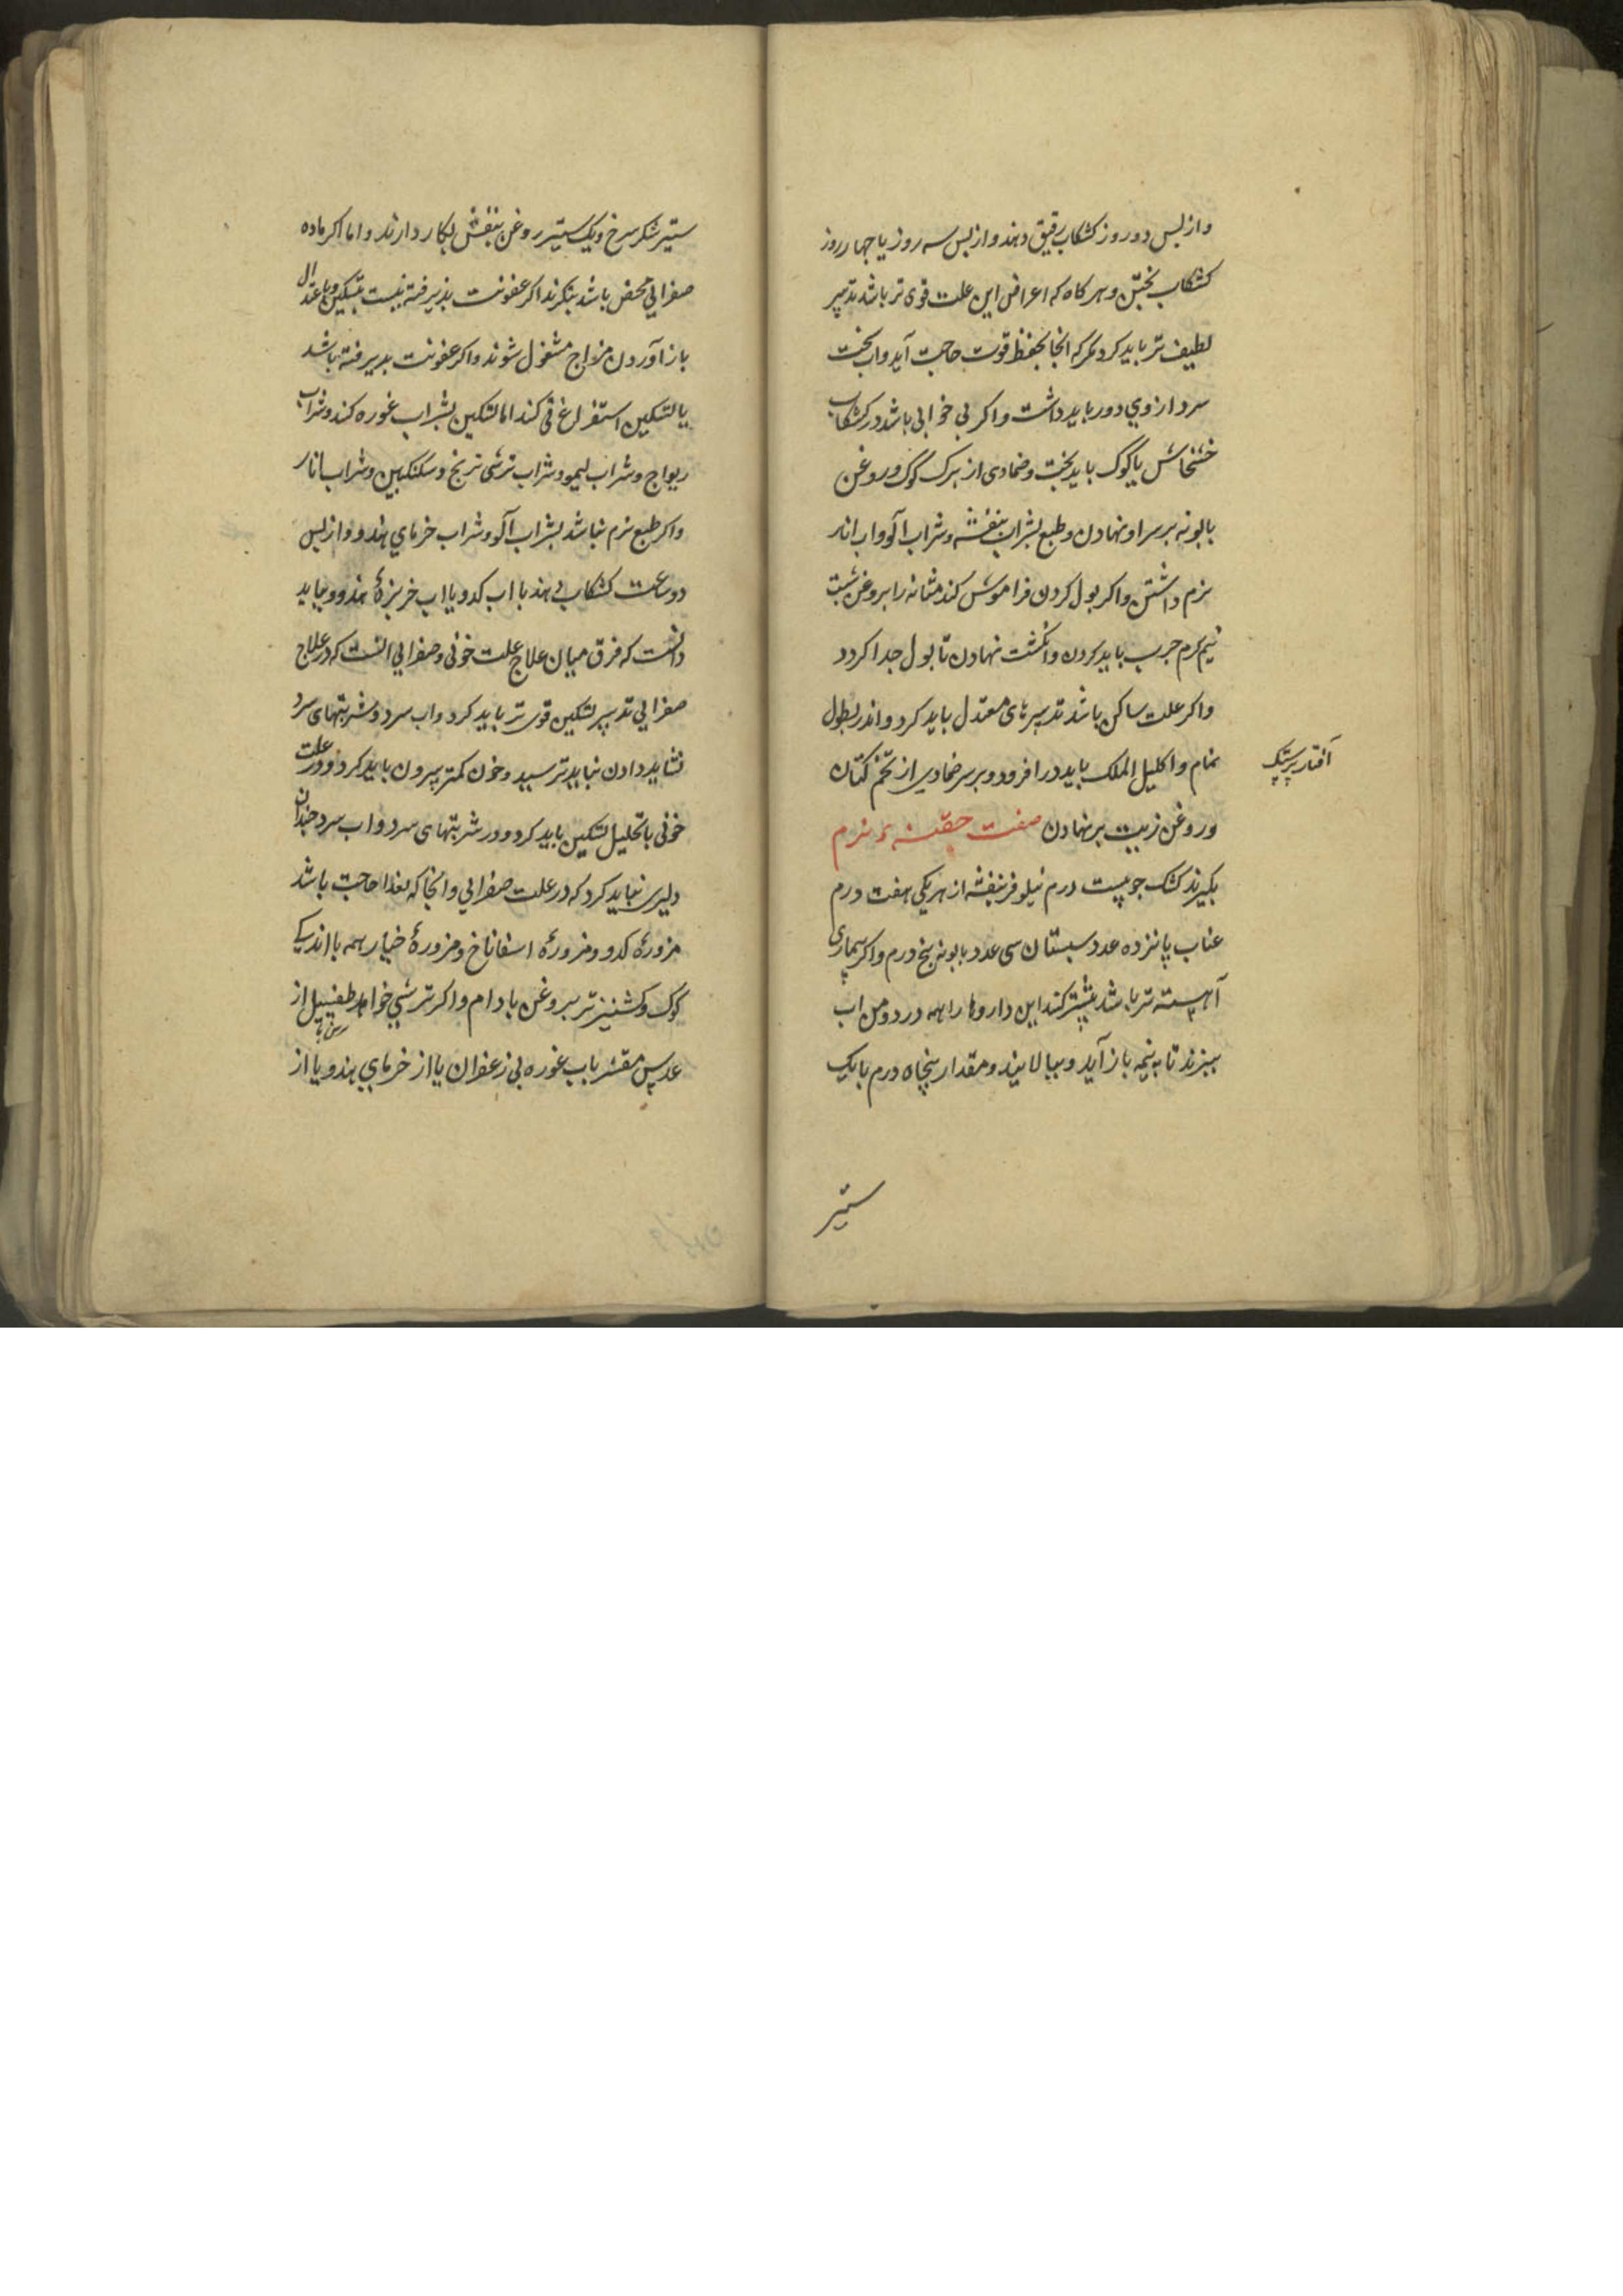 واز پس دو روز کشکاب رقیق دهند واز پس سه روز یا چهار روز
کشکاب پختن وهرکاه که اعراض این علت قوی تر باشد تدبیر
لطیف تر باید کرد مکر که انجا بحفظ قوت حاجت آید واب سخت
سرد از وی دور باید داشت واکر بی خوابی باشد در کشکاب
خشخاش یا کوک باید پخت وضمادی از برک کوک وروغن
بابونه بر سر او نهادن وطبع بشراب بنفشه وشراب آلو واب انار
نرم داشتن واکر بول کردن فراموش کند مثانه را بروغن شبت
نیم کرم چرب باید کردن وانکشت نهادن تا بول جدا کردد
واکر علت ساکن باشد تدبیرهای معتدل باید کرد واندر نطول
نمام واکلیل الملک باید در افزود وبر سر ضمادی از تخم کتان
آفتاب پرستک
وروغن زیت بر نهادن صفت حقنه نرم
بکیرند کشک جو بیست درم نیلوفر بنفشه از هر یکی هفت درم
عناب پانزده عدد سبستان سی عدد بابونه پنج درم واکر بیماری
آهسته تر باشد بیشتر کند این داروها را همه در دو من اب
بپزند تا به نیمه باز آید وبپالایند ومقدار پنجاه درم با یک
ستیر
ستیر شکر سرخ ویک ستیر روغن بنفش بکار دارند واما اکر ماده
صفرایی محض باشد بنکرند اکر عفونت پذیرفته نیست بتسکین وباعتدال
باز آوردن مزاج مشغول شوند واکر عفونت پدیرفته باشد
با تسکین استفراغ قی کند اما تسکین بشراب غوره کند وشراب
ریواج وشراب لیمو وشراب ترشی ترنج وسکنکبین وشراب انار
واکر طبع نرم نباشد بشراب آلو وشراب خرمای هندو واز پس
دو ساعت کشکاب دهند با اب کدو یا اب خربزهٔ هندو وبباید
دانست که فرق میان علاج علت خونی وصفرایی انست که در علاج
صفرایی تدبیر تسکین قوی تر باید کرد واب سرد وشربتهای سرد
نشاید دادن نباید ترسید وخون کمتر بیرون باید کرد ودر علت
خونی با تحلیل تسکین باید کرد ودر شربتهای سرد واب سرد چندان
دلیری نباید کرد که در علت صفرایی وانجا که بغذا حاجت باشد
مزورهٔ کدو ومزورهٔ اسفاناخ ومزورهٔ خیار همه با اندکی
کوک وکشنیز تر بروغن بادام واکر ترشی خواهد طفشیل از
عدس مقشر باب غوره بی زعفران یا از خرمای هندو یا از